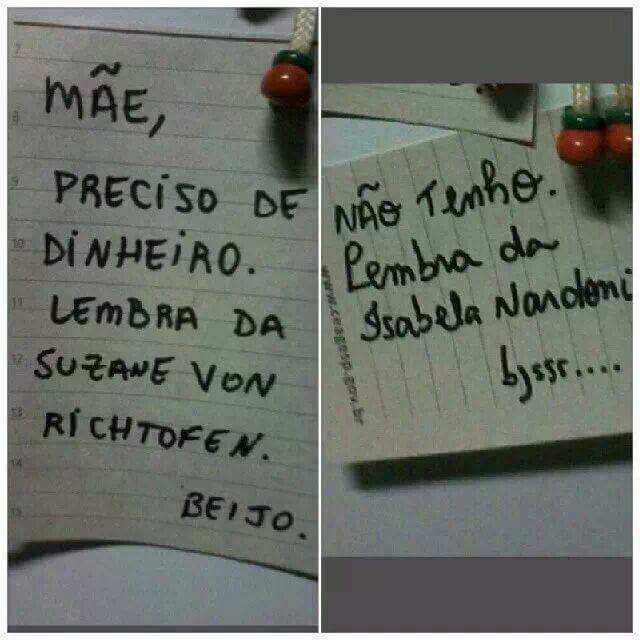 MÃE,
PRECISO DE
DINHEIRO.
LEMBRA DA
SUZANE VON
RICHTOFEN.
BEIJO.
NÃO Tenho.
Lembra da
Isabela Nardoni
bjssr....
www.ceagesp.gov.br
7
8
9
10
11
12
13
14
15